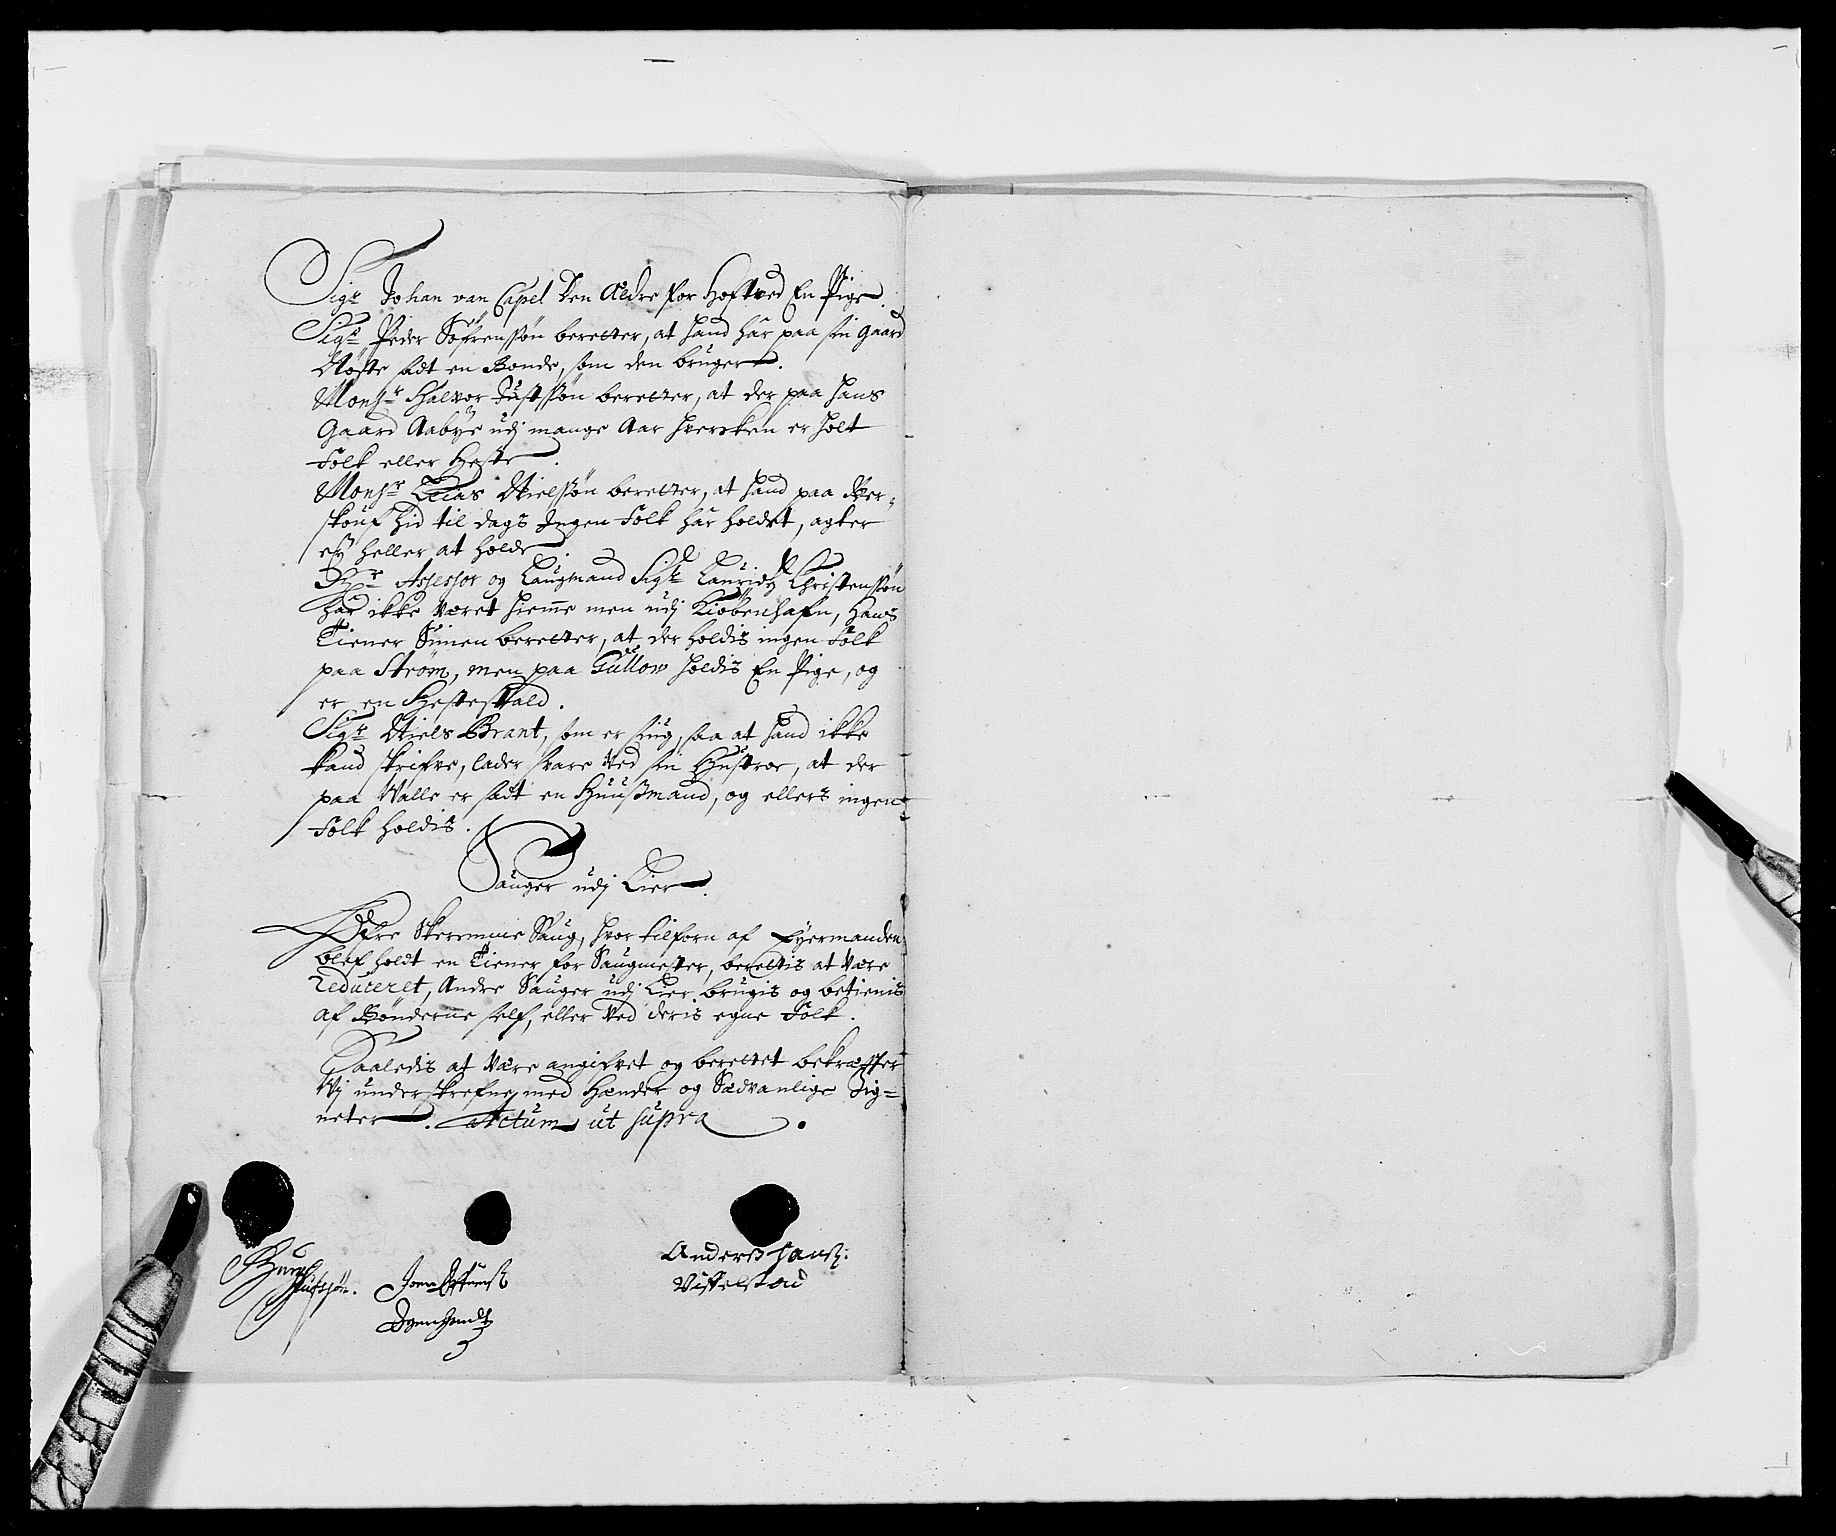 Sigr Johan van Capel Den Ældre for Hoftved En Pige.
Sigr Peder Söfrenssön beretter, at hand har paa sin gaard
Nöste sadt en Bonde, som den bruger.
Monsr Halvor Justssön beretter, at der paa hans
Gaard Aabÿe udj mange Aar hversken er holt
Folk eller Heste.
Monsr Lucas Nielssön beretter, at hand paa Rer-
skouf hid til dags Ingen Folk har holdet, agter
eÿ heller at holde.
Hr Assessor og Laugmand Sigr Lauridz Christenssön
har ikke været hieme men udj Kiöbenhafn, Hans
Tiener Simen beretter, at der holdis ingen Folk
paa Ström, men paa Gullow holdis En Pige, og
er en Hestestald.
Sigr Niels Brant, som er siug, saa at hand ikke
kand skrifve, lader svare Ved sin Hustroe, at der
paa Valle er sadt en Huusmand, og ellers ingen
Folk holdis.
Sauger udj Lier.
Øfre Skeremme Saug, hvor tilforn af Eyermanden
blef holdt en Tiener for Saugmester, berettis at være
reduceret, Andre Sauger udj Lier brugis og betienis
af Bönderne self, eller Ved deris egne Folk.
Saaledis at være angifvet og berettet bekræffter
Vj underskrefne med Hænder og Sædvanlige Sig-
neter. Actum ut supra.
Anderss Hanss:
Vittelstad